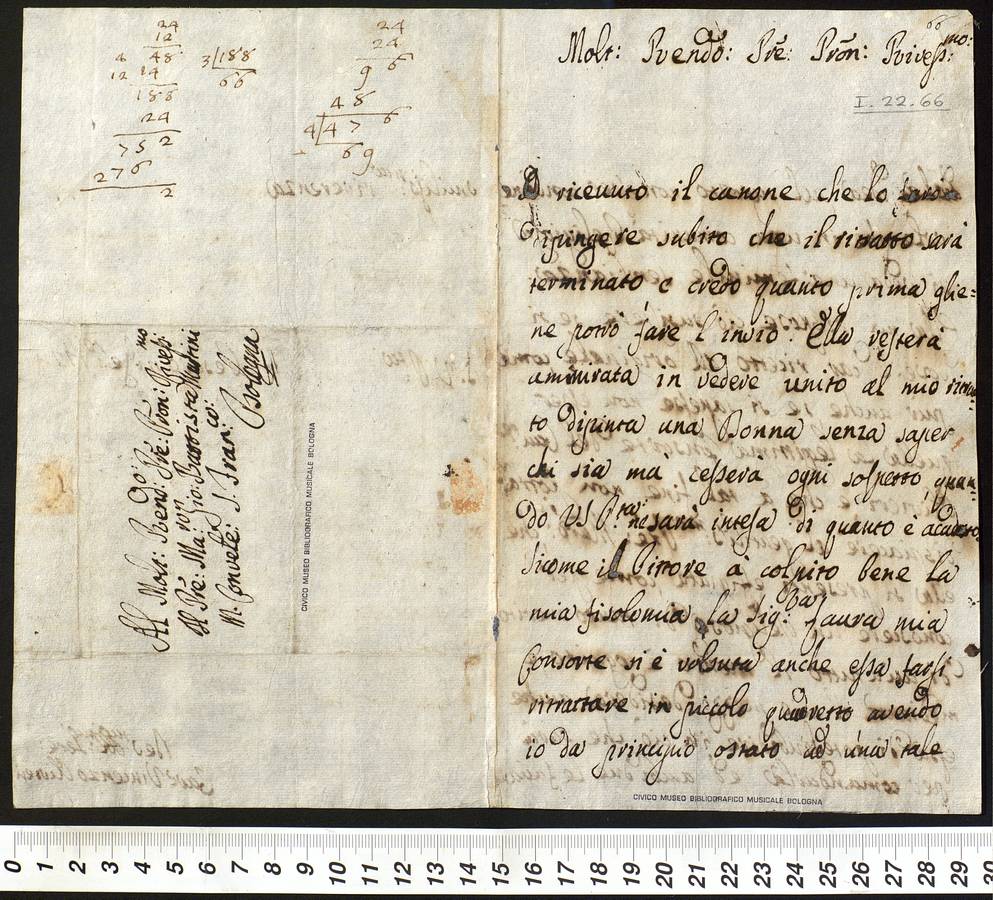 24
12
48
4
12 14
188
24
752
276
2
3 188
66
24
24
9 6
48
4 47 6
69
Al Molt: Rend:do Pré: Pron: Rivess:mo
Il Pré: Ma: Gio: Battista Martini
N. Convete: S. Fran:co:
Bologna
CIVICO MUSEO BIBLIOGRAFICO MUSICALE BOLOGNA
66
Molt: Rvendo: Pré: Prõn: Rivess:mo:
I. 22.66
O riceuuto il canone che lo farò
dipingere subito che il ritratto sarà
terminato e credo quanto prima glie=
ne potrò fare l'invio. Ella resterà
ammirata in vedere unito al mio ritrat
to dipinta una Donna senza saper
chi sia ma cesserà ogni sospetto quan=
do VS P.ta ne sarà intesa di quanto è acaduto,
sicome il Pittore à colpito bene la
mia fisolomia la Sig:ra Laura mia
Consorte si è volsuta anche essa farsi
ritrattare in piccolo quadretto avendo
io da principio ostato ad una tale
CIVICO MUSEO BIBLIOGRAFICO MUSICALE BOLOGNA
0 1 2 3 4 5 6 7 8 9 10 11 12 13 14 15 16 17 18 19 20 21 22 23 24 25 26 27 28 29 30